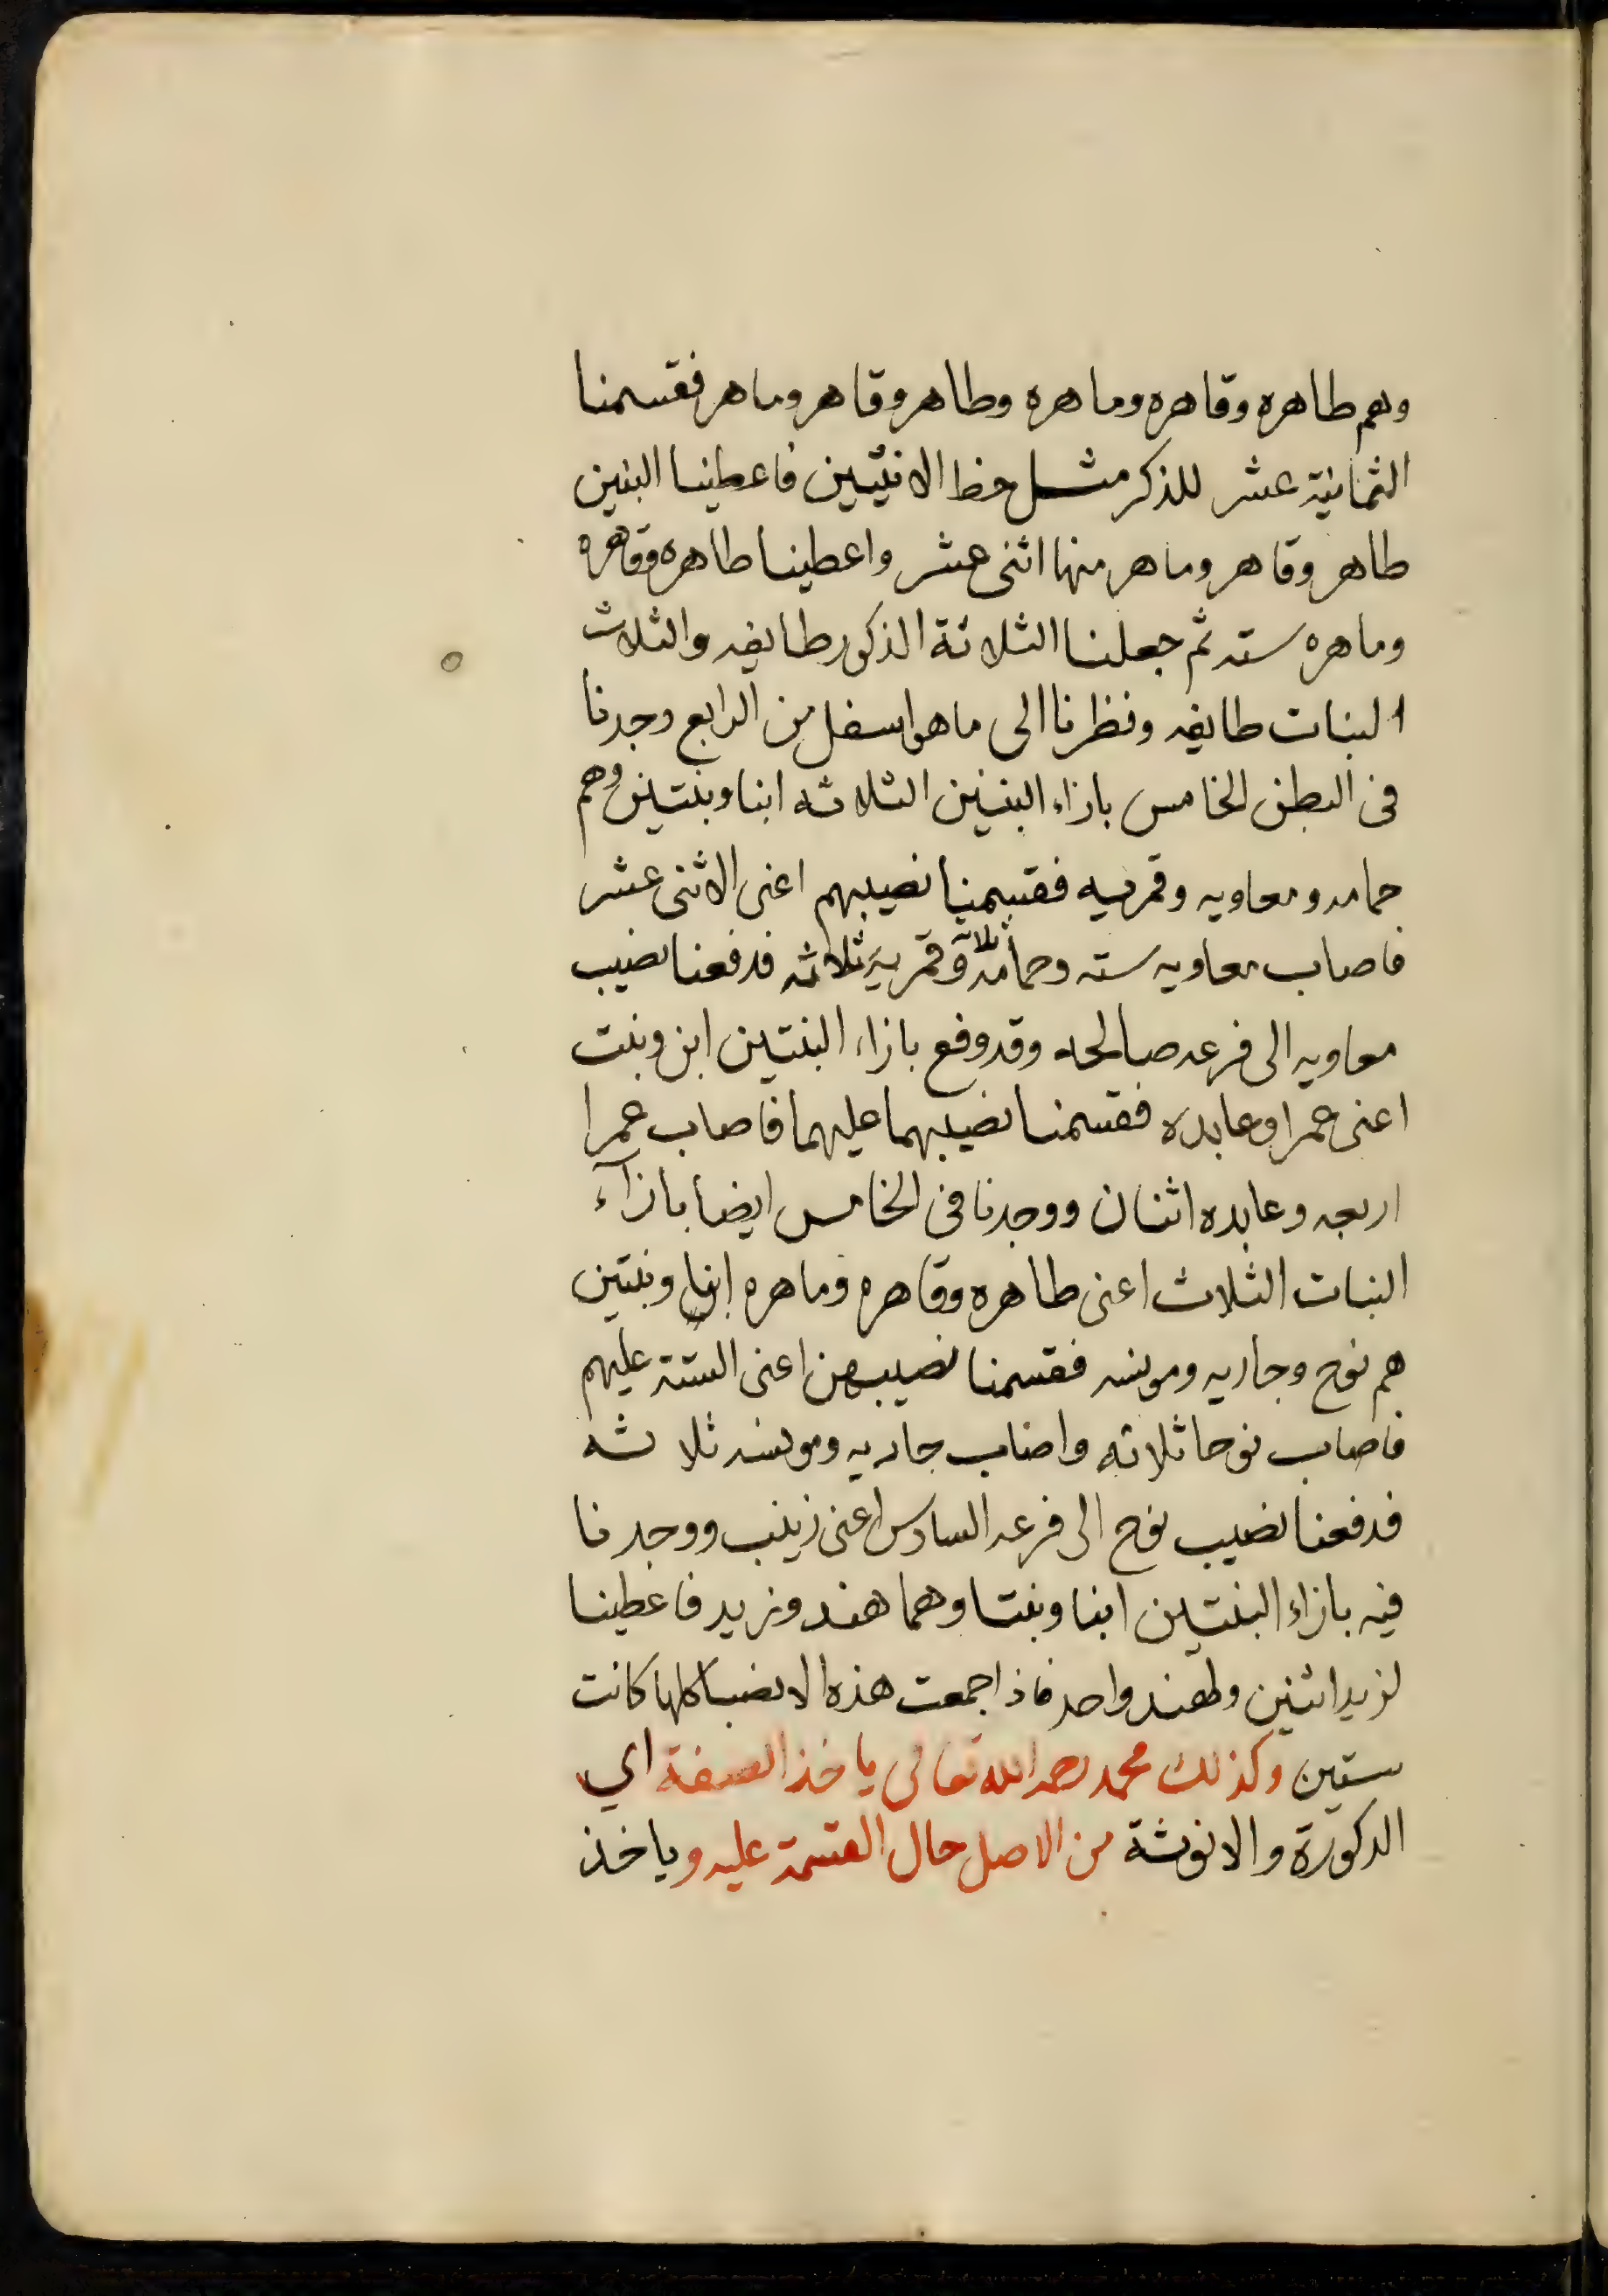 وهم طاهره وقاهره وماهره وطاهر وقاهر وماهر فقسمنا
الثمانية عشر للذكر مثل حظ الانثيين فاعطينا البنين
طاهر وقاهر وماهر منها اثنى عشر واعطينا طاهره وقاهره
وماهره سته ثم جعلنا الثلاثة الذكور طايفه والثلاث
البنات طايفه ونظرنا الى ما هو اسفل من الرابع وجدنا
فى البطن الخامس بازاء البنين الثلاثه ابنا وبنتين وهم
حامد ومعاويه وقمريه فقسمنا نصيبهم اعنى الاثنى عشر
فاصاب معاويه سته وحامد ثلاثة وقمرية ثلاثه فدفعنا نصيب
معاويه الى فرعه صالحه وقد وقع بازاء البنتين ابن وبنت
اعنى عمرا وعابده فقسمنا نصيبهما عليهما فاصاب عمرا
اربعه وعابده اثنان ووجدنا فى الخامس ايضا بازآء
البنات الثلاث اعنى طاهره وقاهره وماهره ابنا وبنتين
هم نوح وجاريه ومونسه فقسمنا نصيبهن اعنى الستة عليهم
فاصاب نوحا ثلاثه واصاب جاريه ومونسه ثلاثه
فدفعنا نصيب نوح الى فرعه السادس اعنى زينب ووجدنا
فيه بازاء البنتين ابنا وبنتا وهما هند وزيد فاعطينا
لزيد اثنين ولهند واحد فاذا جمعت هذه الانصبا كلها كانت
ستين وكذلك محمد رحمه الله تعالى ياخذ الصفة اي
الذكورة والانوثة من الاصل حال القسمة عليه وياخذ